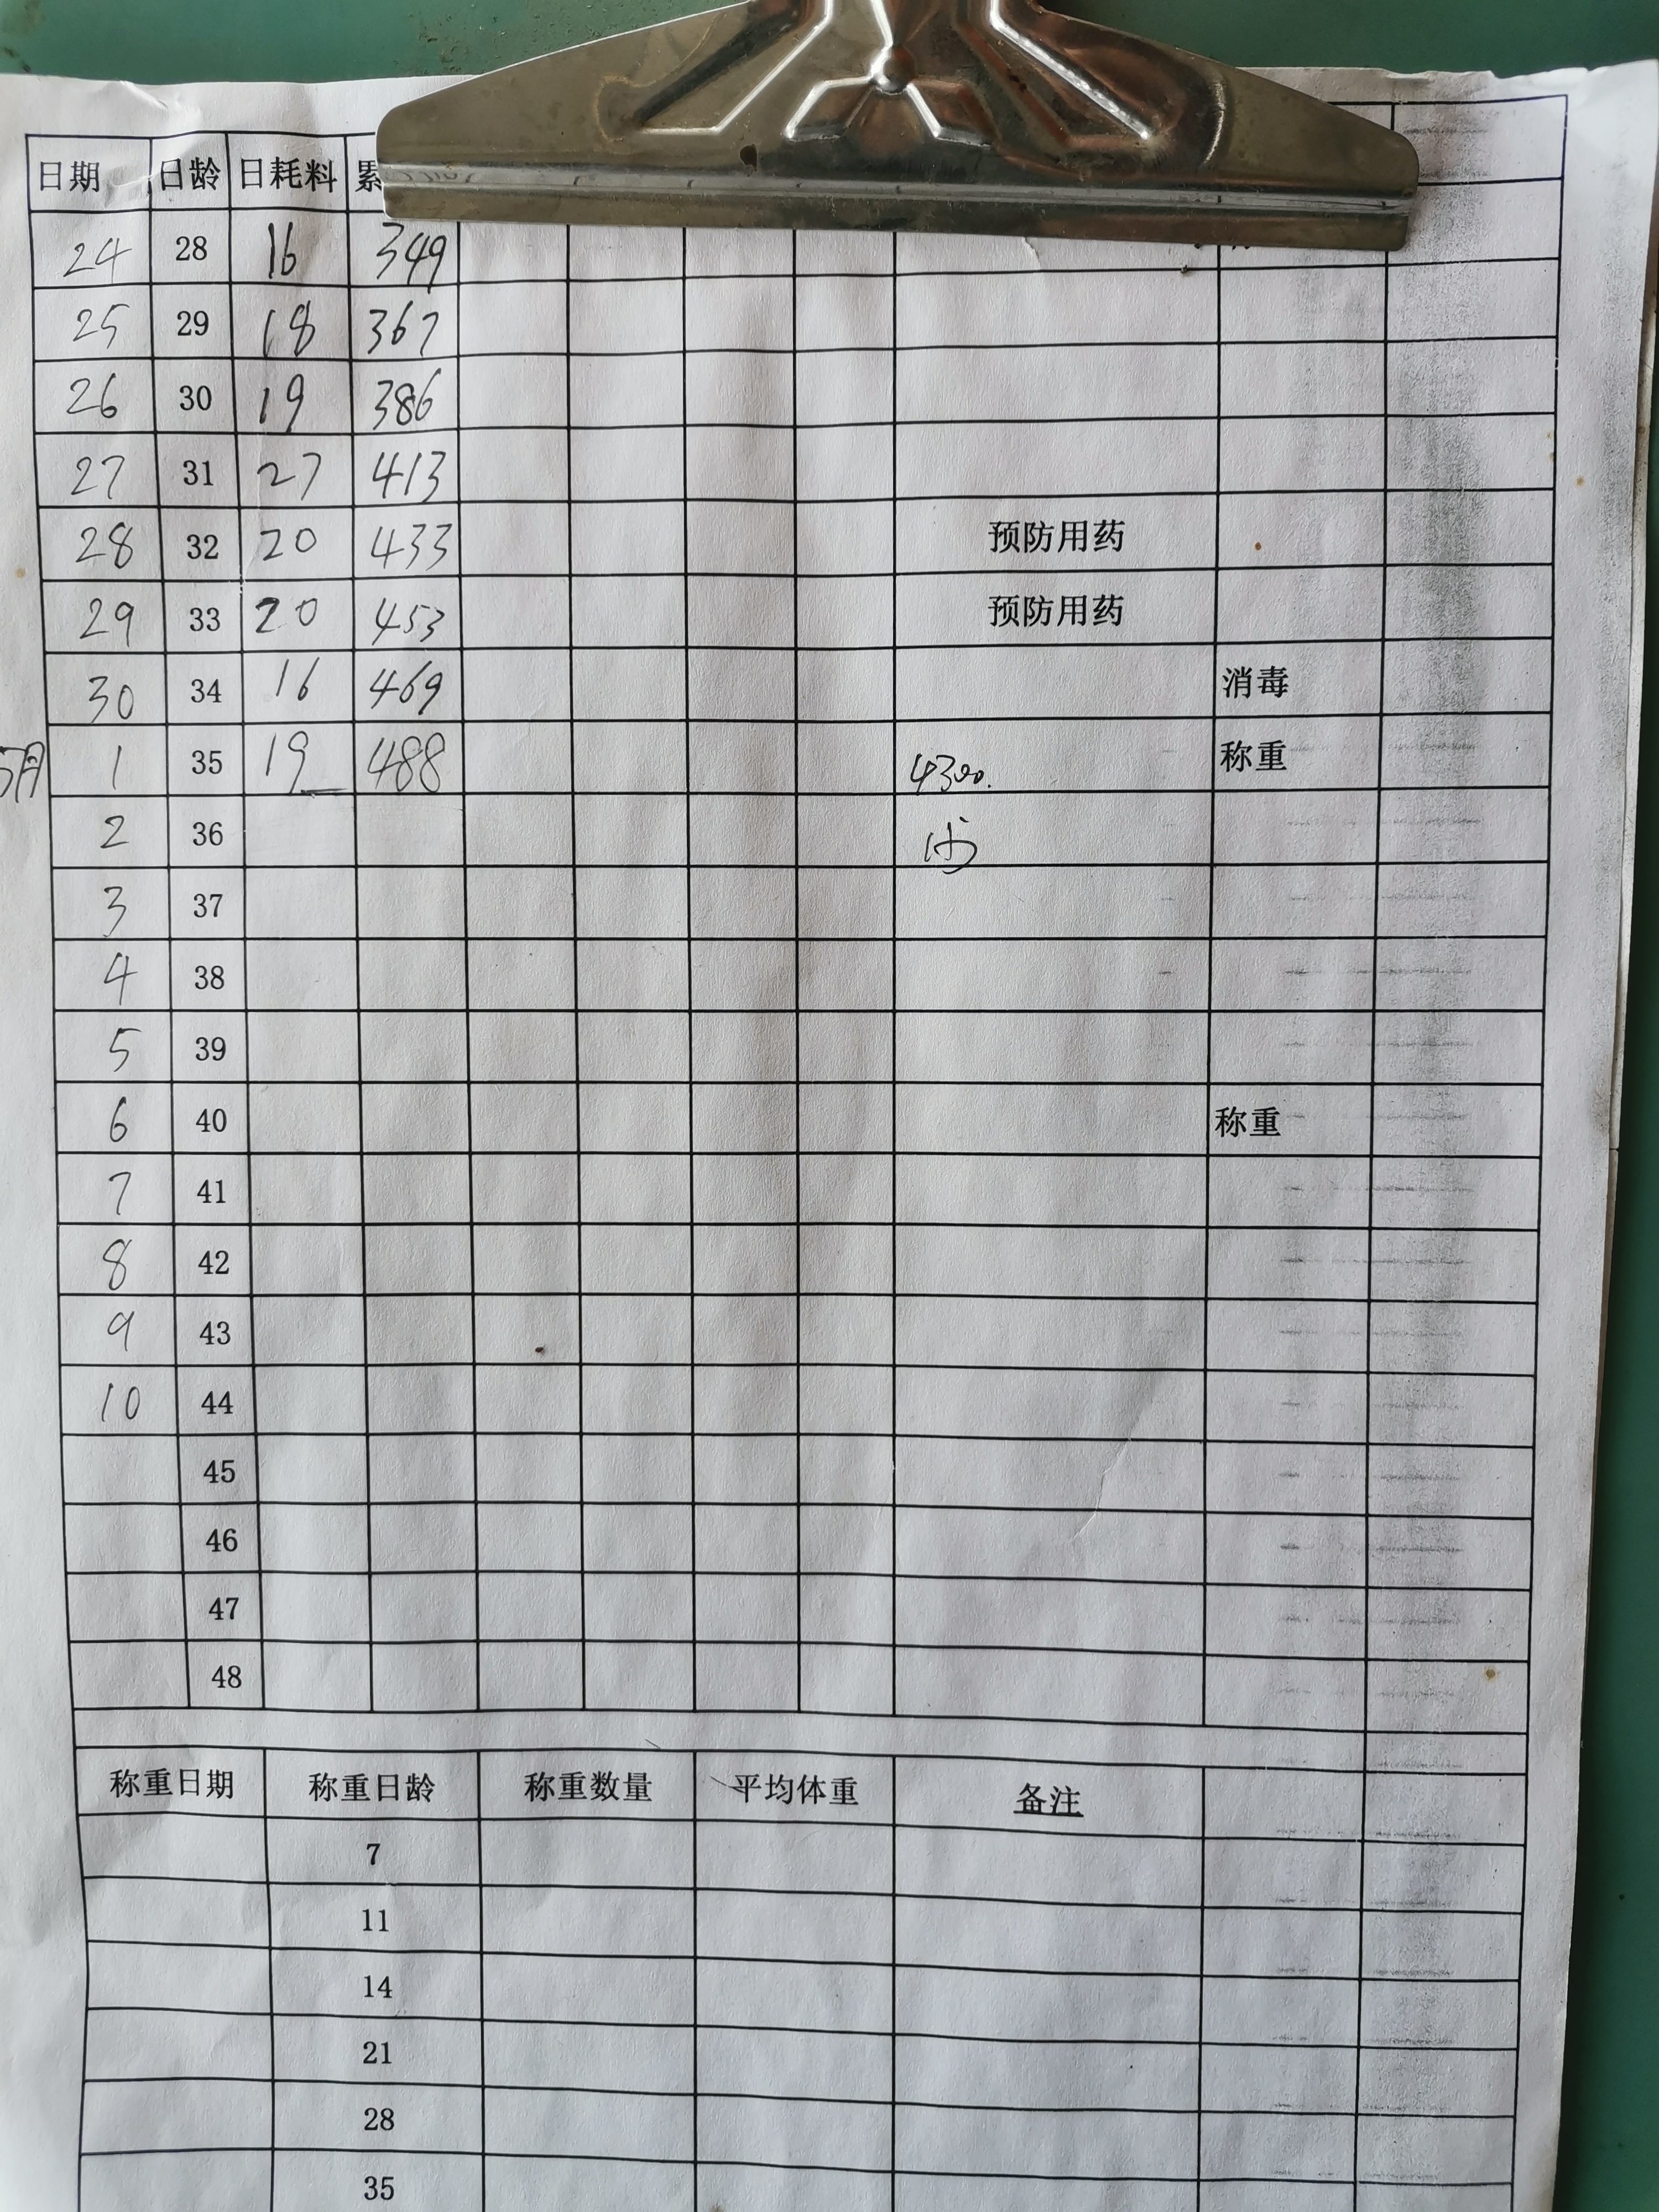 日期 日龄 日耗料 累
24 28 16 349
25 29 18 367
26 30 19 386
27 31 27 413
28 32 20 433 预防用药
29 33 20 453 预防用药
30 34 16 469 消毒
5月 1 35 19 488 4300. 称重
2 36
3 37
4 38
5 39
6 40 称重
7 41
8 42
9 43
10 44
45
46
47
48
称重日期 称重日龄 称重数量 平均体重 备注
7
11
14
21
28
35